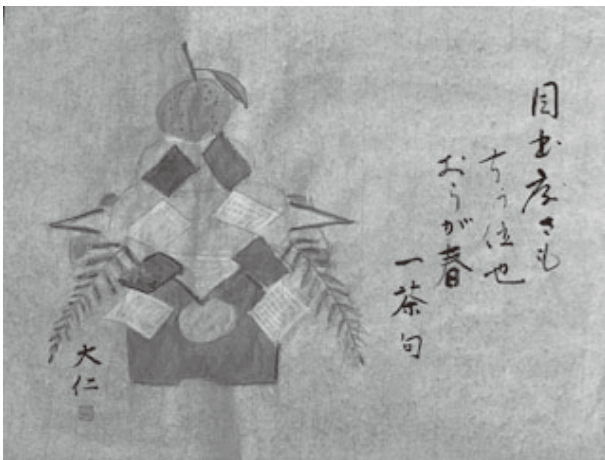 目出度さも
ちう位也
おらが春
一茶句
大仁